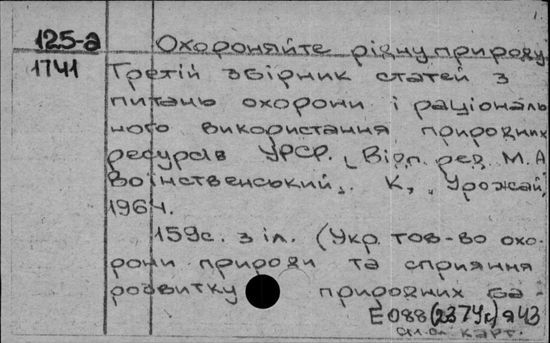 125-а Охороняйте рідну природу.
1741 Третій збірник статей з
питань охорони і раціональ
ного використання природних
ресурсів УРСР. [Відп. ред. М.А
Воїнственський]. К., "Урожай",
1964.
159с. з іл. (Укр. тов-во охо-
рони природи та сприяння
розвитку природних ба-
Е088(237Ук)я43
карт.